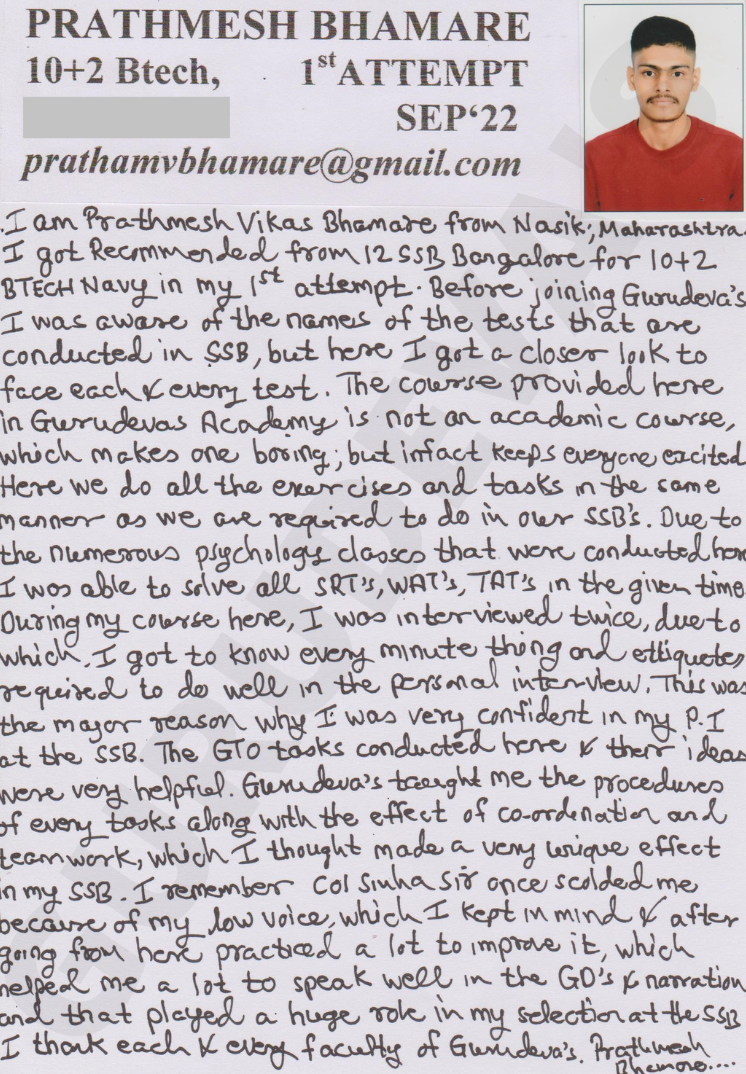 PRATHMESH BHAMARE
10+2 Btech, 1st ATTEMPT
SEP‘22
prathamvbhamare@gmail.com
I am Prathmesh Vikas Bhamare from Nasik, Maharashtra.
I got Recommended from 12 SSB Bangalore for 10+2
BTECH Navy in my 1st attempt. Before joining Gurudeva's
I was aware of the names of the tests that are
conducted in SSB, but here I got a closer look to
face each & every test. The course provided here
in Gurudevas Academy is not an academic course,
which makes one boring; but infact keeps everyone excited
Here we do all the exercises and tasks in the same
manner as we are required to do in our SSB's. Due to
the numerous psychology classes that were conducted here
I was able to solve all SRT's, WAT's, TAT's in the given time.
During my course here, I was interviewed twice, due to
which, I got to know every minute thing and ettiquetes
required to do well in the personal interview. This was
the major reason why I was very confident in my P.I
at the SSB. The GTO tasks conducted here & their ideas
were very helpful. Gurudeva's taught me the procedures
of every tasks along with the effect of co-ordination and
teamwork, which I thought made a very unique effect
in my SSB. I remember Col Sinha Sir once scolded me
because of my low voice, which I kept in mind & after
going from here practiced a lot to improve it, which
helped me a lot to speak well in the GD's & narration
and that played a huge role in my selection at the SSB
I thank each & every faculty of Gurudeva's. Prathmesh
Bhamare....
GURUDEVA'S